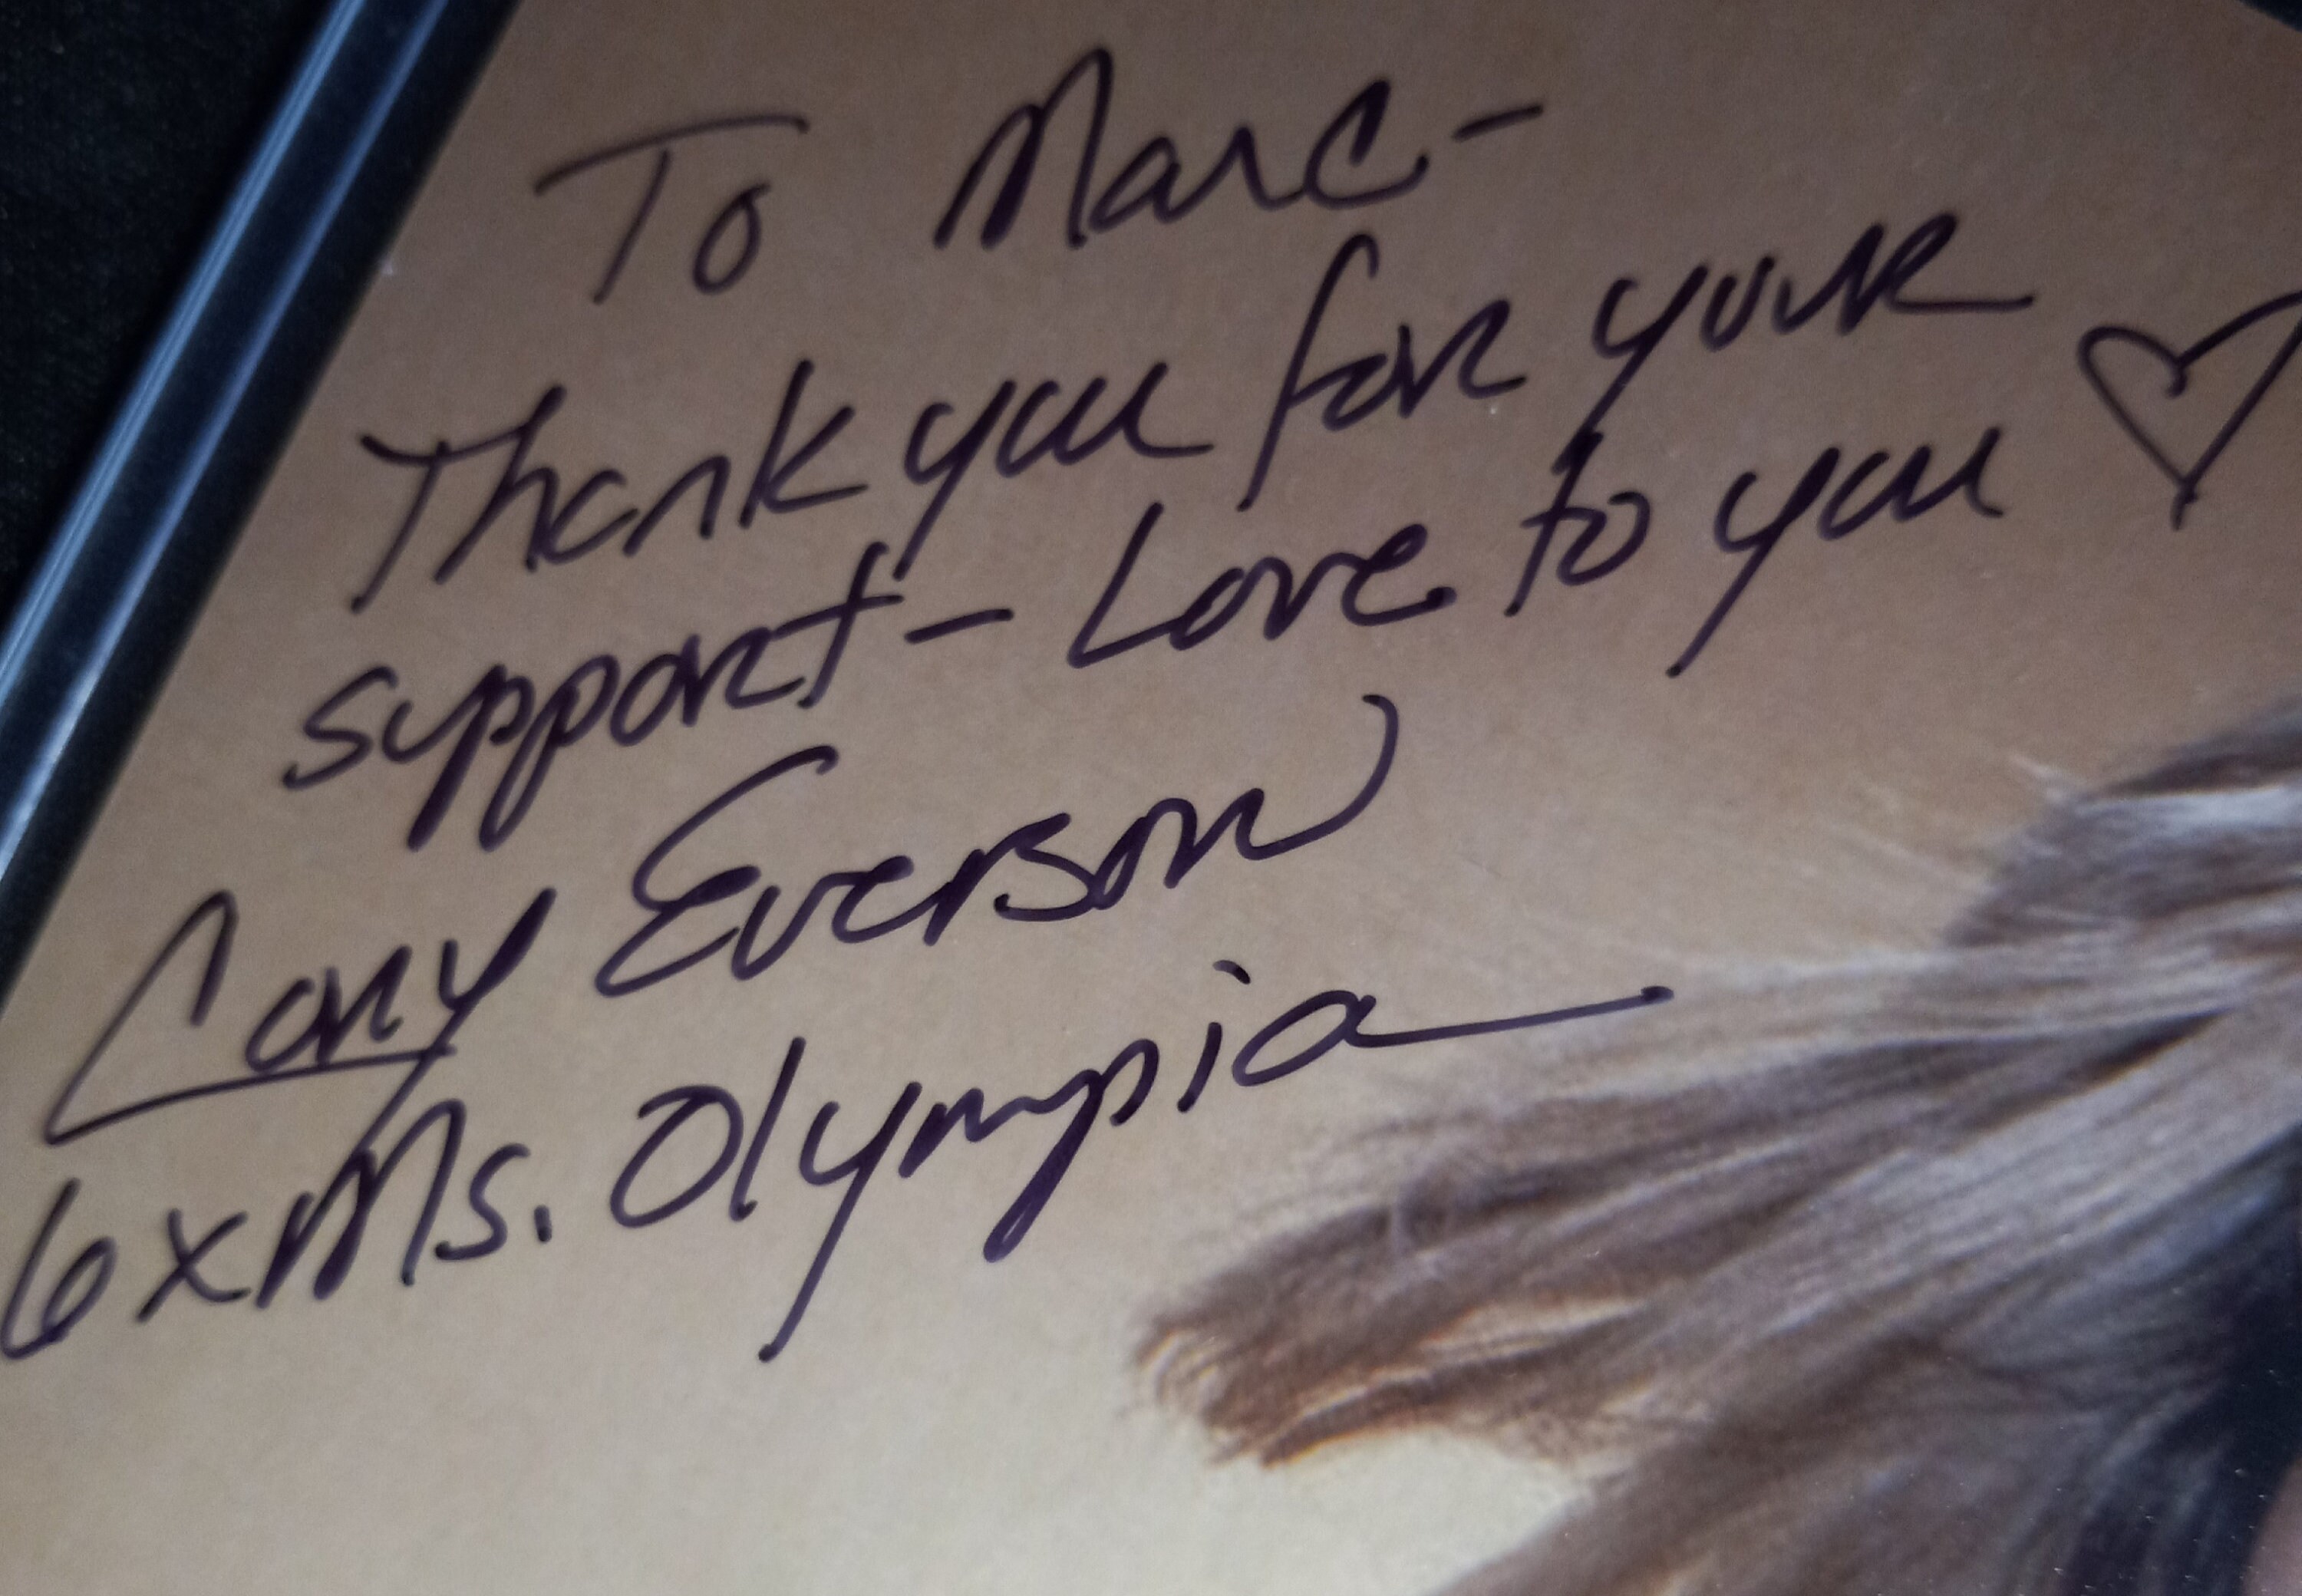 To Marc-
Thank you for your
support - Love to you ♡
Cory Everson
6x Ms. Olympia